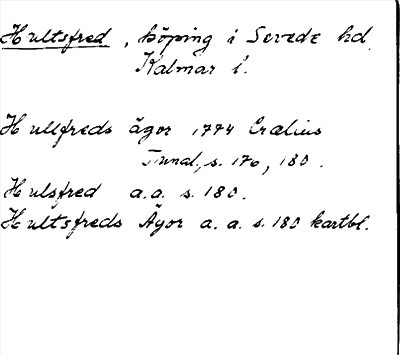 Hultsfred, köping i Sevede hd
Kalmar l.
Hullfreds ägor 1774 Crælius
Tunal., s. 170, 180.
Hulsfred a.a. s. 180.
Hultsfreds Ägor a. a. s. 180 kartbl.